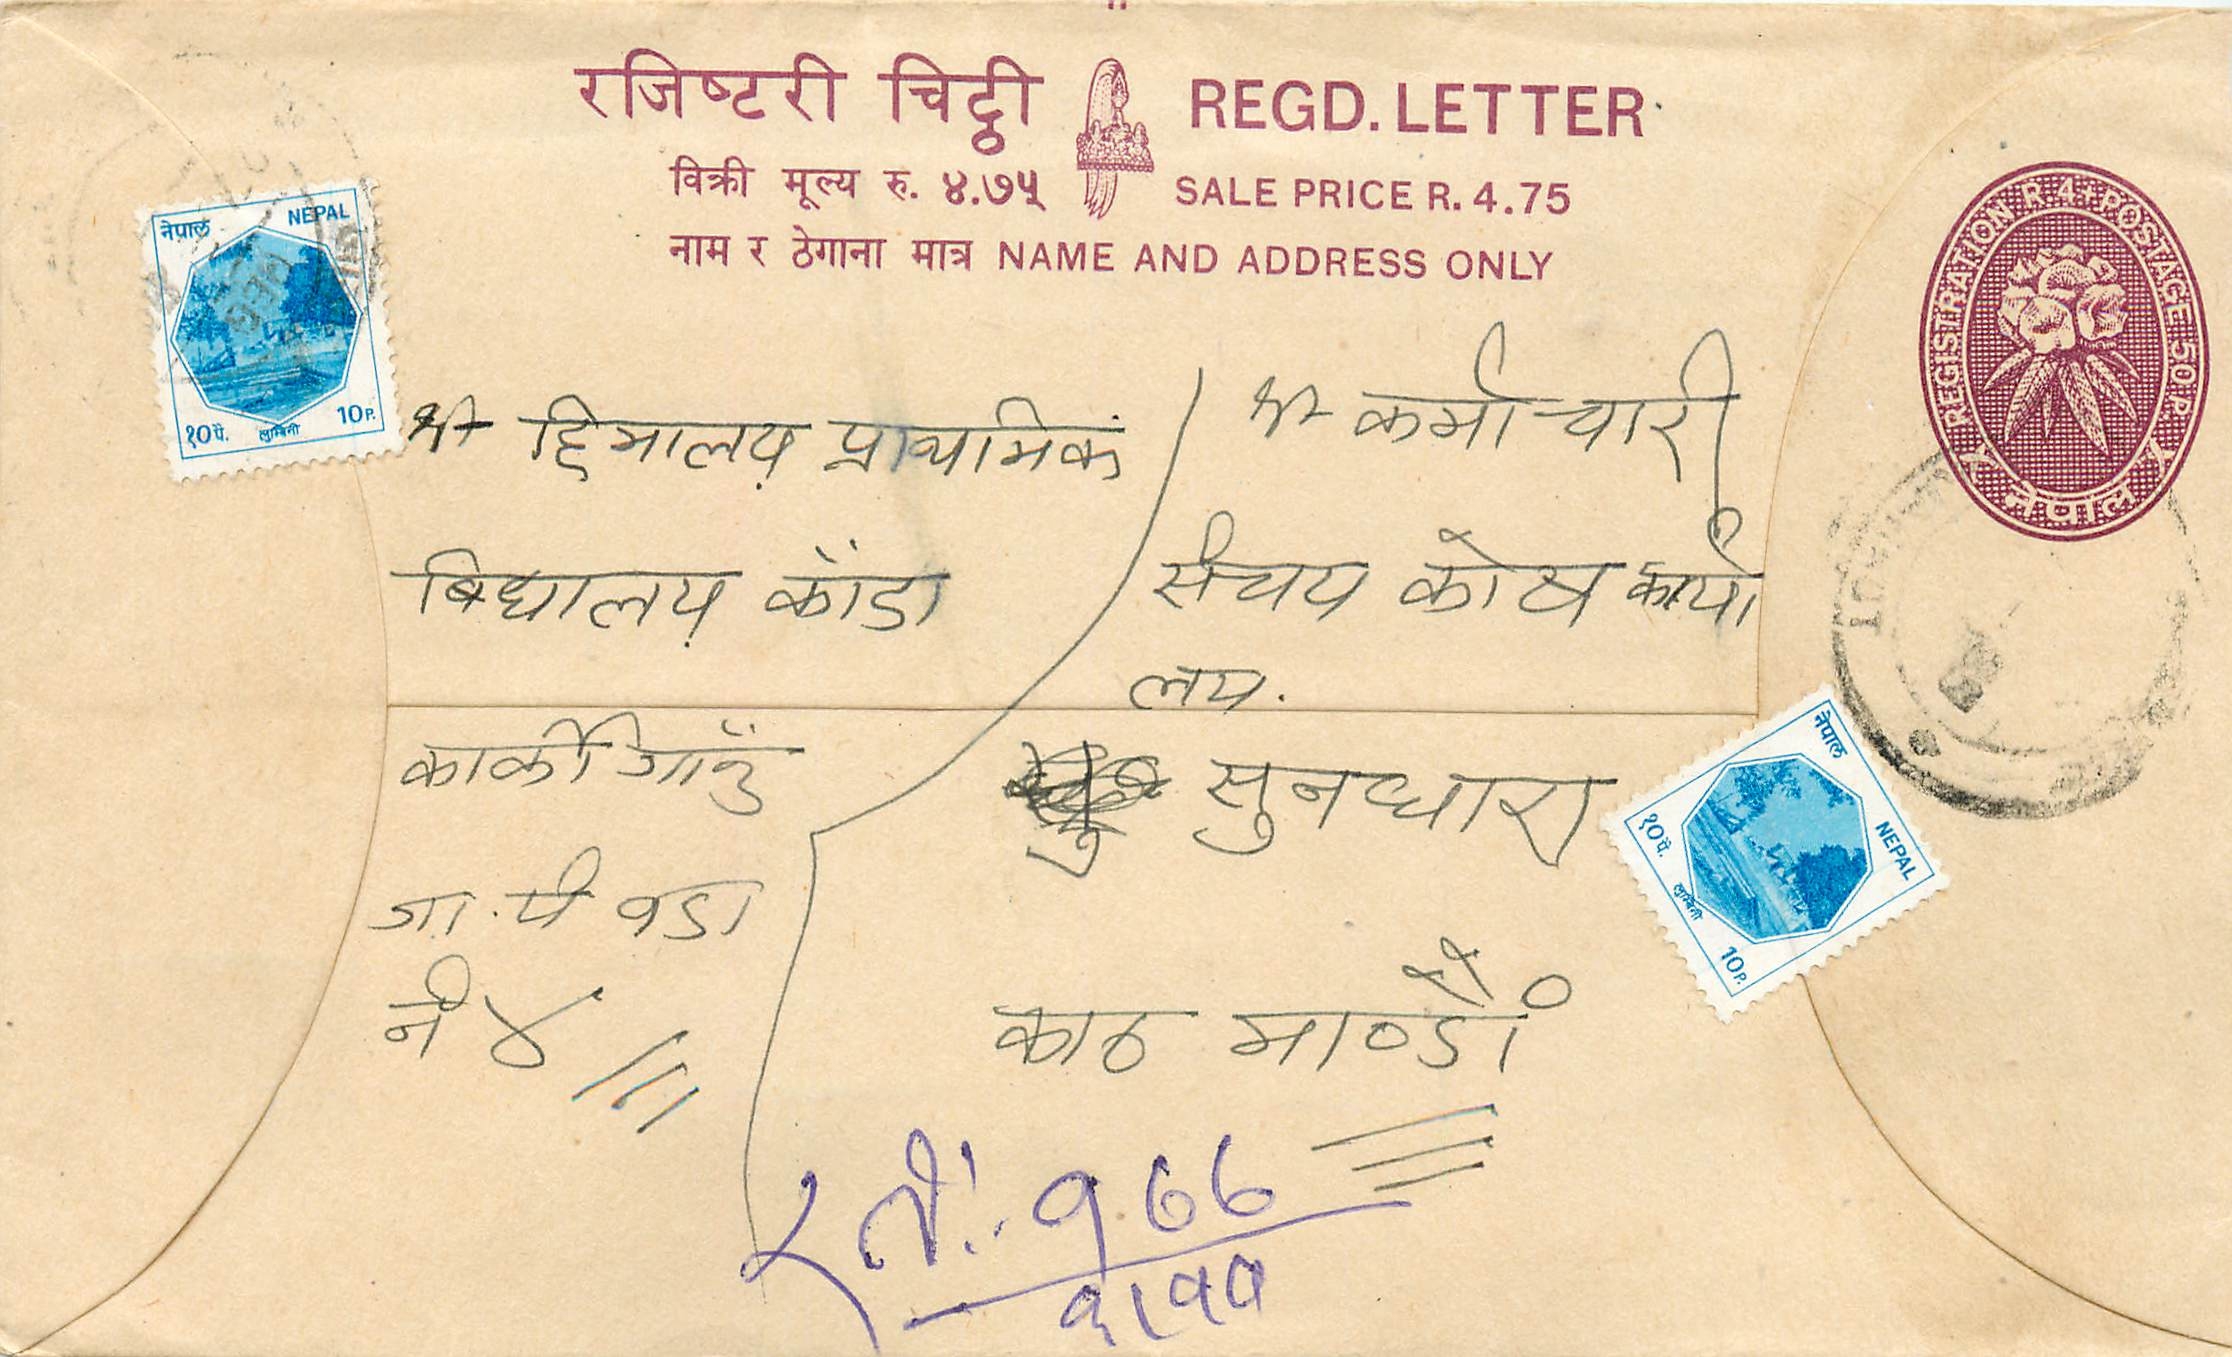 रजिष्टरी चिट्ठी REGD. LETTER
विक्री मूल्य रु. ४.७५ SALE PRICE R. 4.75
नाम र ठेगाना मात्र NAME AND ADDRESS ONLY
REGISTRATION R. 4 + POSTAGE 50 P.
नेपाल
नेपाल NEPAL
१० पै. लुम्बिनी 10 P.
श्री हिमालय प्राथमिक
बिद्यालय काँडा
कार्की गाउँ
गा. पं वडा
नं ४
श्री कर्मचारी
संचय कोष कार्या
लय.
सुनधारा
काठमाण्डौं
नेपाल NEPAL
१० पै. लुम्बिनी 10 P.
र नं. १७७